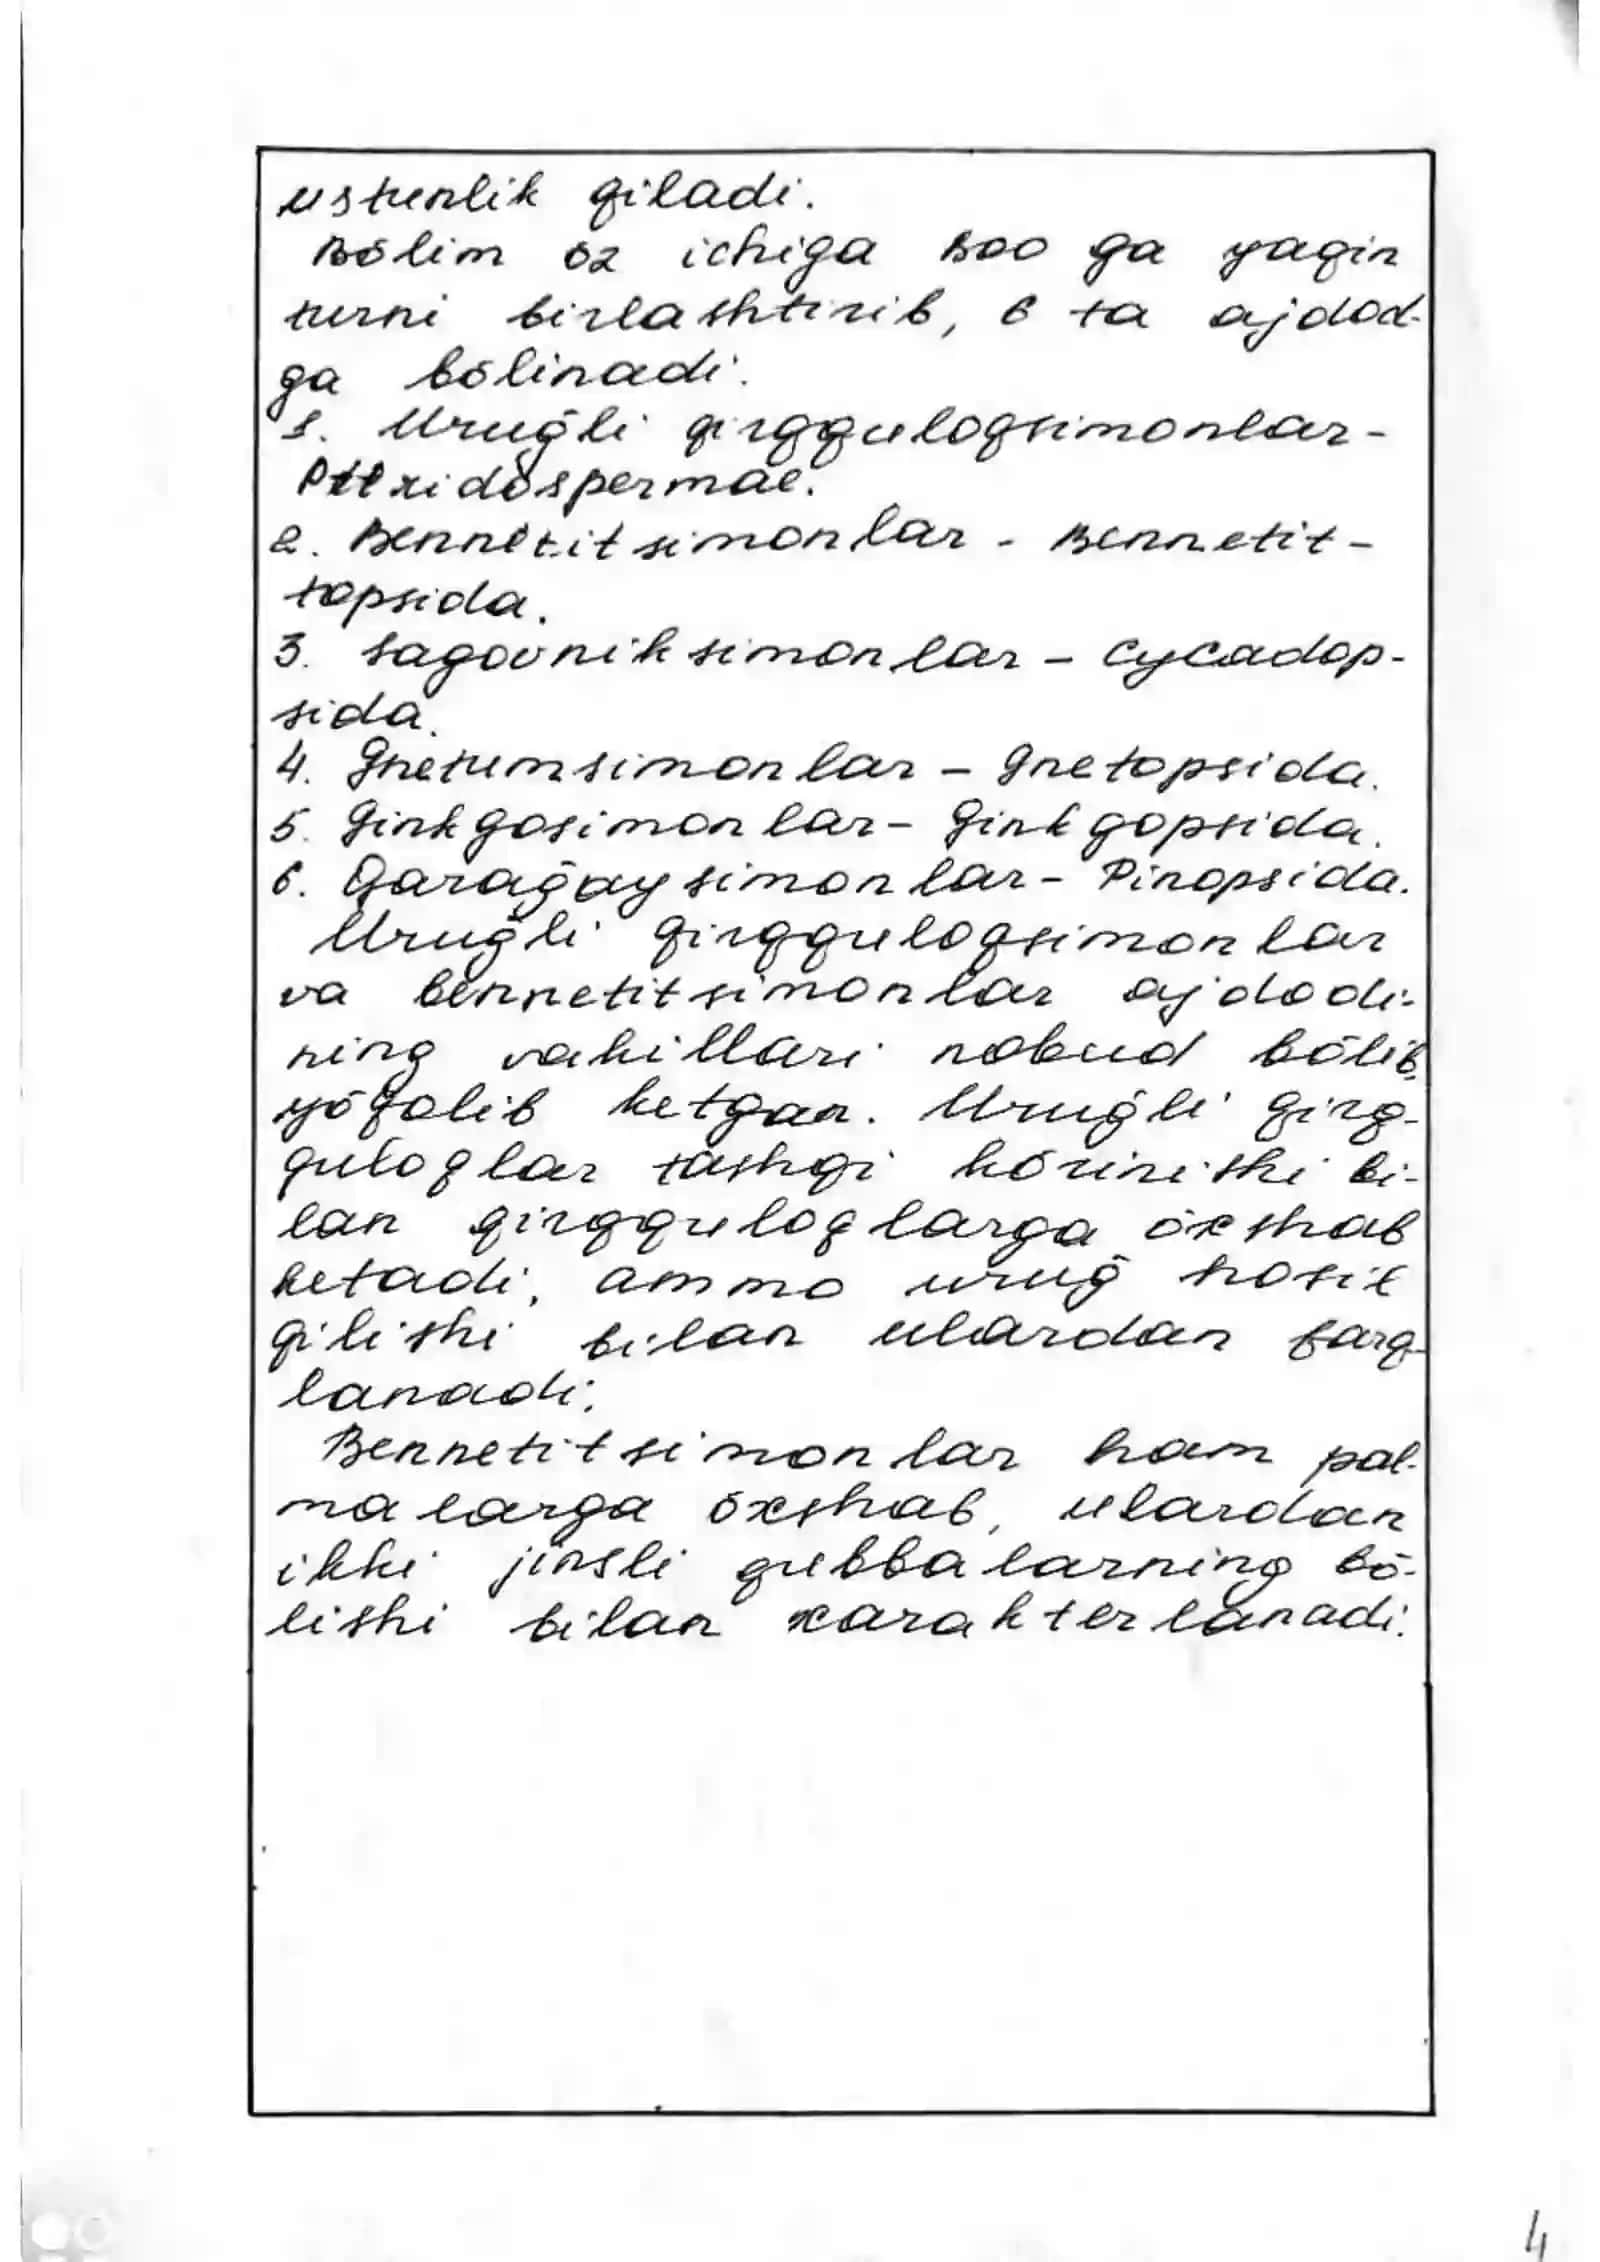 ustunlik qiladi.
Bõlim õz ichiga 800 ga yaqin
turni birlashtirib, 6 ta ajdod-
ga bõlinadi.
1. Uruğli qirqquloqsimonlar-
Pteridospermae.
2. Bennetitsimonlar - Bennetit-
topsida.
3. Sagovniksimonlar - Cycadop-
sida.
4. Gnetumsimonlar - Gnetopsida.
5. Ginkgosimonlar - Ginkgopsida.
6. Qarağaysimonlar - Pinopsida.
Uruğli qirqquloqsimonlar
va bennetitsimonlar ajdodi-
ning vakillari nobud bõlib,
yõqolib ketgan. Uruğli qirq-
quloqlar tashqi kõrinishi bi-
lan qirqquloqlarga õxshab
ketadi, ammo uruğ hosil
qilishi bilan ulardan farq-
lanadi.
Bennetitsimonlar ham pal-
malarga õxshab, ulardan
ikki jinsli qubbalarning bõ-
lishi bilan xarakterlanadi.
4